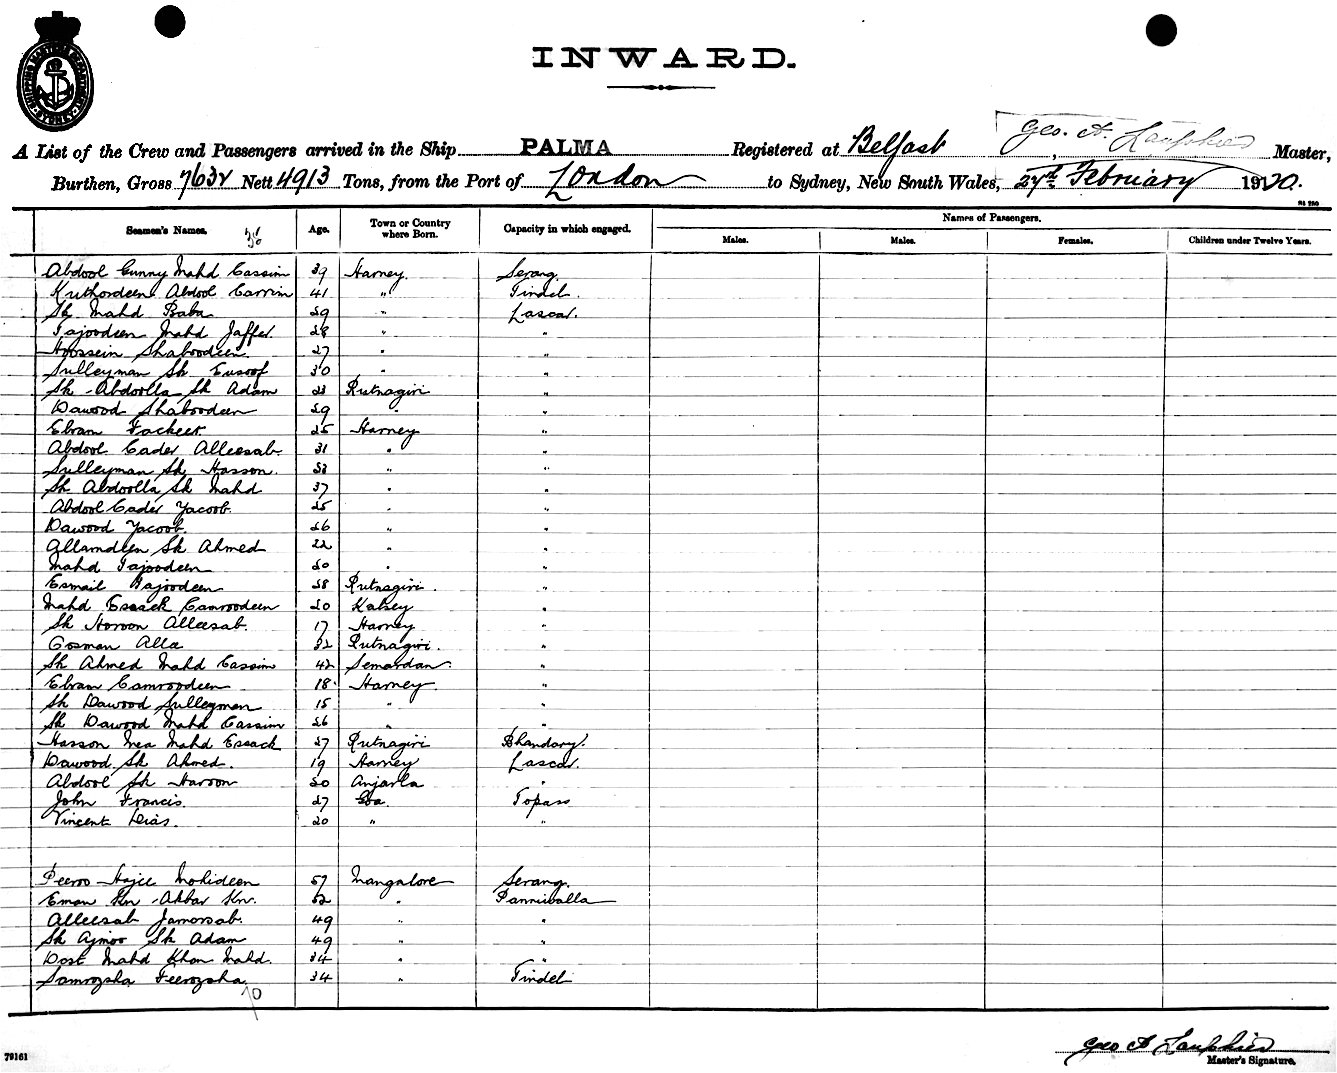 SHIPPING MASTER'S DEPARTMENT
SYDNEY
INWARD.
Geo. A.
A List of the Crew and Passengers arrived in the Ship PALMA Registered at Belfast, Master,
Burthen, Gross 7632 Nett 4913 Tons, from the Port of London to Sydney, New South Wales, 27th February 1920.
Seamen's Names. Age. Town or Country where Born. Capacity in which engaged. Names of Passengers.
Males. Males. Females. Children under Twelve Years.
Abdool Gunny Mahd Cassim 39 Harney. Serang.
Kuthordeen Abdool Carrim 41 " Tindel.
Sk Mahd Baba 29 " Lascar.
Tajoodeen Mahd Jaffer. 28 " "
Hossein Shaboodeen. 27 " "
Sulleyman Sk Eusoof 30 " "
Sk Abdoolla Sk Adam 23 Rutnagiri "
Dawood Shaboodeen 29 " "
Ebram Fackeer 25 Harney "
Abdool Cader Alleesab 31 " "
Sulleyman Sk Hasson. " "
Sk Abdoolla Sk Mahd 37 " "
Abdool Cader Yacoob. 25 " "
Dawood Yacoob. 26 " "
Allamdeen Sk Ahmed 22 " "
Mahd Tajoodeen 20 " "
Esmail Tajoodeen 28 Rutnagiri. "
Mahd Essack Camroodeen 20 Kalsey "
Sk Haroon Alleesab. 17 Harney "
Oosman Alla 32 Rutnagiri. "
Sk Ahmed Mahd Cassim 42 Semardan. "
Ebram Camroodeen 18 Harney. "
Sk Dawood Sulleyman 15 " "
Sk Dawood Mahd Cassim 26 " "
Hasson Mea Mahd Essack 27 Rutnagiri Bhandary.
Dawood Sk Ahmed. 19 Harney Lascar.
Abdool Sk Haroon 20 Anjarla "
John Francis. 27 Goa. Topass
Vincent Dias. 20 " "
Peeroo Hajee Mohideen 57 Mangalore Serang.
Eman Kn Akbar Kn. 52 " Panniwalla
Alleesab Jamorsab. 49 " "
Sk Ajmoo Sk Adam 49 " "
Dost Mahd Khan Mahd. 34 " "
Samrozsha Feerozsha. 34 " Tindel
10
Geo A
Master's Signature.
79161